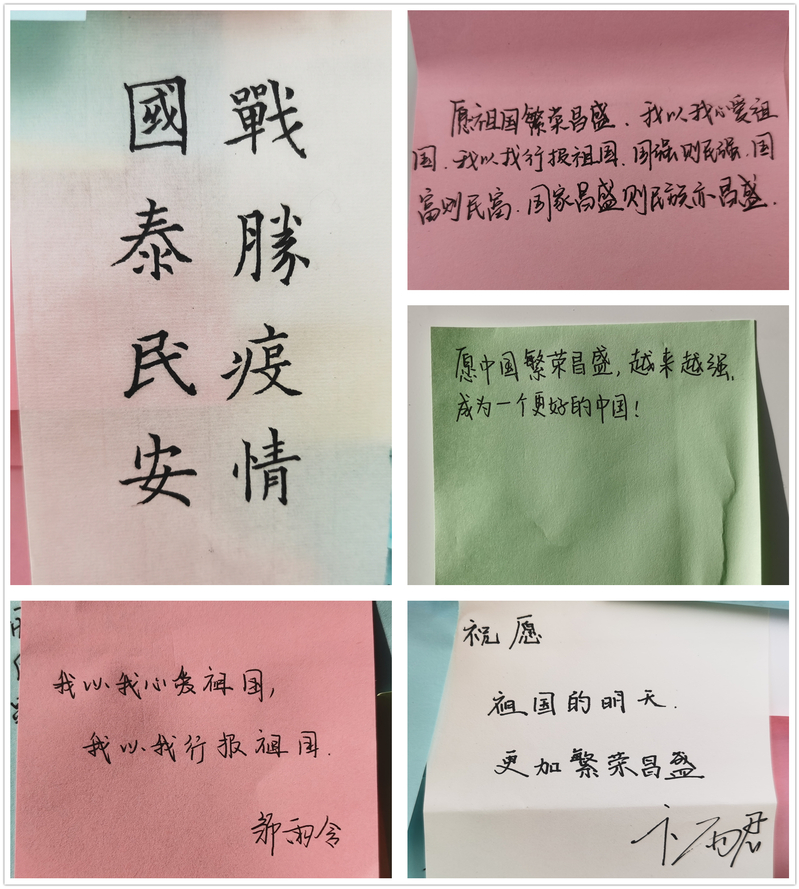 戰勝疫情
國泰民安
愿祖国繁荣昌盛.我以我心爱祖
国.我以我行报祖国.国强则民强.国
富则民富.国家昌盛则民族亦昌盛.
愿中国繁荣昌盛,越来越强,
成为一个更好的中国!
我以我心爱祖国,
我以我行报祖国.
祝愿
祖国的明天.
更加繁荣昌盛